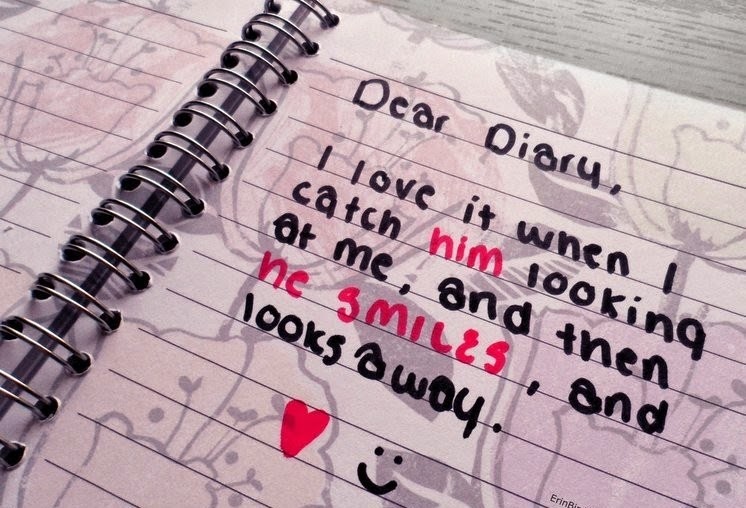 Dear Diary,
I love it when I
catch him looking
at me, and then
he SMILES, and
looks away.